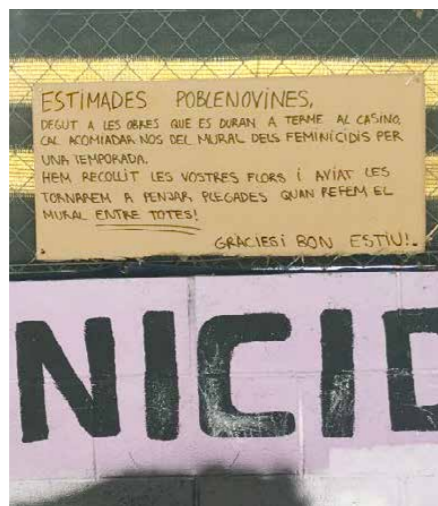 ESTIMADES POBLENOVINES,
DEGUT A LES OBRES QUE ES DURAN A TERME AL CASINO,
CAL ACOMIADAR-NOS DEL MURAL DELS FEMINICIDIS PER
UNA TEMPORADA.
HEM RECOLLIT LES VOSTRES FLORS I AVIAT LES
TORNAREM A PENJAR PLEGADES QUAN REFEM EL
MURAL ENTRE TOTES!
GRÀCIES I BON ESTIU!
NICID